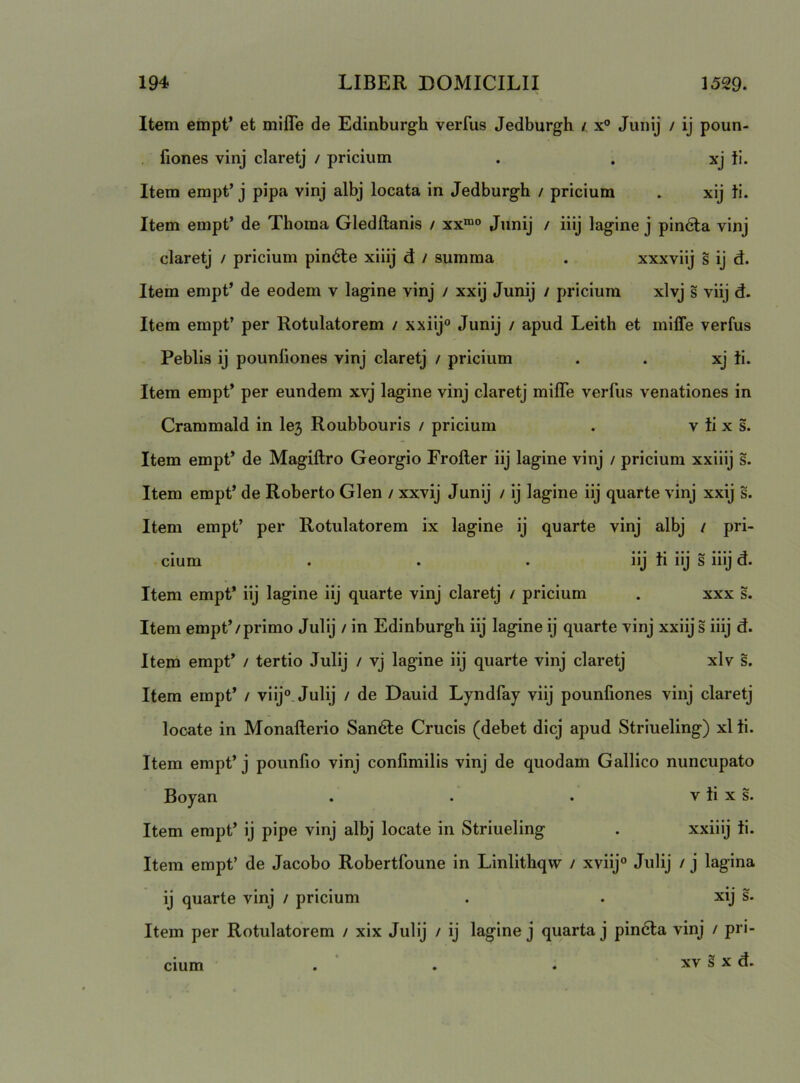 194 LIBER DOMICILII 1529.
Item empt' et miſſe de Edinburgh verſus Jedburgh / x⁰ Junij / ij poun-
ſiones vinj claretj / pricium . . xj ŧi.
Item empt' j pipa vinj albj locata in Jedburgh / pricium . xij ŧi.
Item empt' de Thoma Gledſtanis / xxᵐᵒ Junij / iiij lagine j pincta vinj
claretj / pricium pincte xiiij đ / summa . xxxviij s̃ ij đ.
Item empt' de eodem v lagine vinj / xxij Junij / pricium xlvj s̃ viij đ.
Item empt' per Rotulatorem / xxiij⁰ Junij / apud Leith et miſſe verſus
Peblis ij pounſiones vinj claretj / pricium . . xj ŧi.
Item empt' per eundem xvj lagine vinj claretj miſſe verſus venationes in
Crammald in leʒ Roubbouris / pricium . v ŧi x s̃.
Item empt' de Magiſtro Georgio Froſter iij lagine vinj / pricium xxiiij s̃.
Item empt' de Roberto Glen / xxvij Junij / ij lagine iij quarte vinj xxij s̃.
Item empt' per Rotulatorem ix lagine ij quarte vinj albj / pri-
cium . . . iij ŧi iij s̃ iiij đ.
Item empt' iij lagine iij quarte vinj claretj / pricium . xxx s̃.
Item empt' / primo Julij / in Edinburgh iij lagine ij quarte vinj xxiij s̃ iiij đ.
Item empt' / tertio Julij / vj lagine iij quarte vinj claretj xlv s̃.
Item empt' / viij⁰ Julij / de Dauid Lyndſay viij pounſiones vinj claretj
locate in Monaſterio Sancte Crucis (debet dicj apud Striueling) xl ŧi.
Item empt' j pounſio vinj conſimilis vinj de quodam Gallico nuncupato
Boyan . . . v ŧi x s̃.
Item empt' ij pipe vinj albj locate in Striueling . xxiiij ŧi.
Item empt' de Jacobo Robertſoune in Linlithqw / xviij⁰ Julij / j lagina
ij quarte vinj / pricium . . xij s̃.
Item per Rotulatorem / xix Julij / ij lagine j quarta j pincta vinj / pri-
cium . . . xv s̃ x đ.